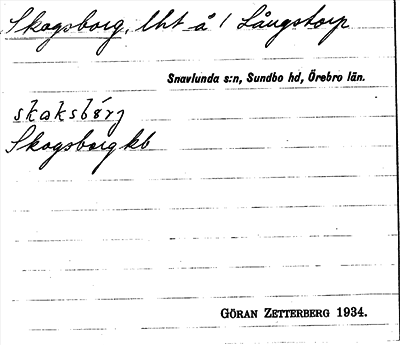 Skogsborg, lht å 1 Långstorp
Snavlunda s:n, Sundbo hd, Örebro län.
skoksbórj
Skogsborg kb
GÖRAN ZETTERBERG 1934.